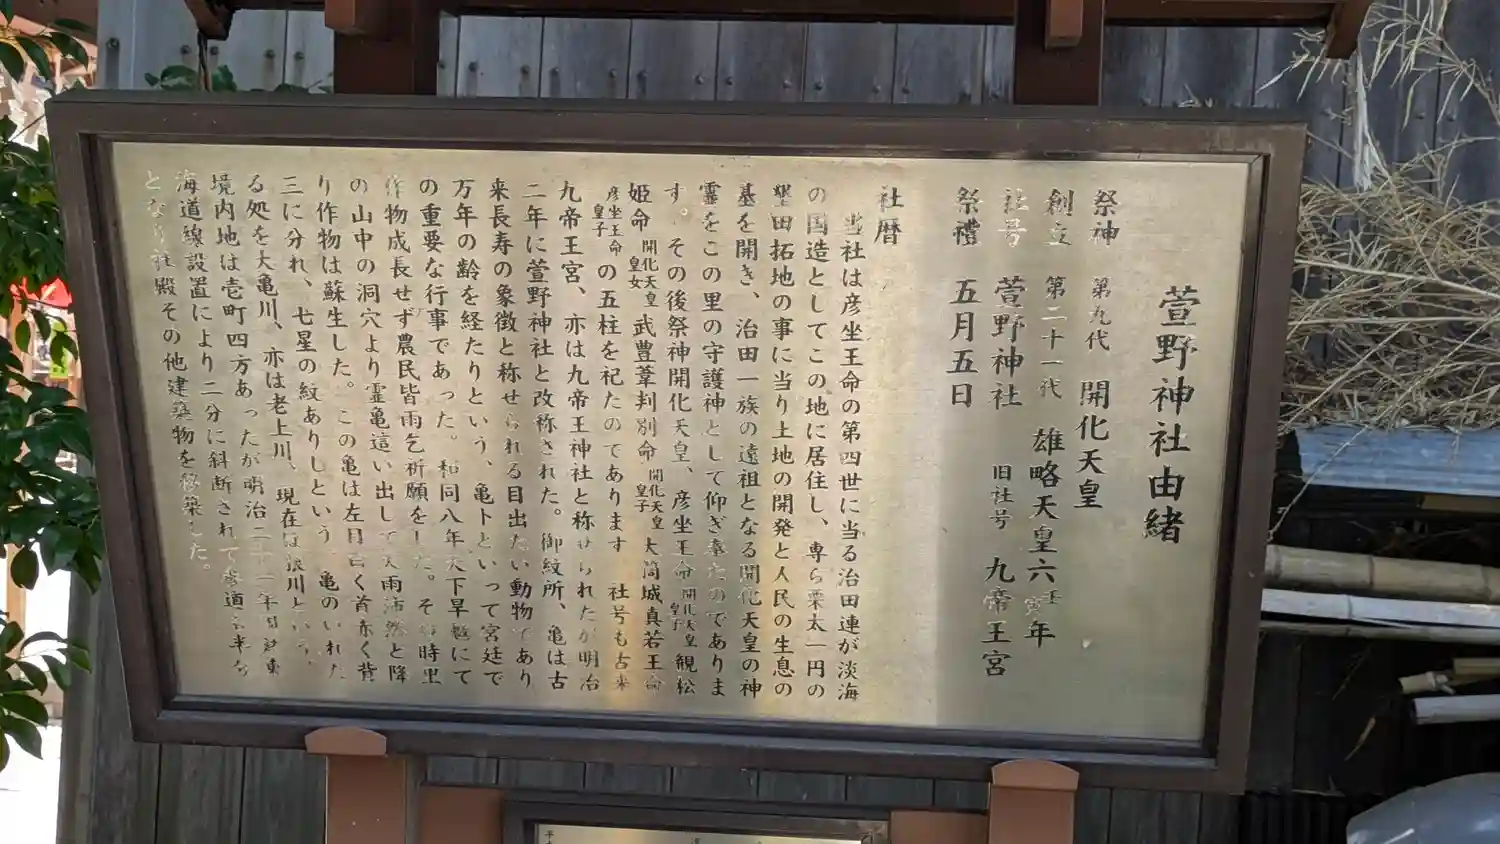 萱野神社由緒
祭神 第九代 開化天皇
創立 第二十一代 雄略天皇六壬寅年
社号 萱野神社 旧社号 九帝王宮
祭禮 五月五日
社暦
当社は彦坐王命の第四世に当る治田連が淡海
の国造としてこの地に居住し、専ら栗太一円の
墾田拓地の事に当り土地の開発と人民の生息の
基を開き、治田一族の遠祖となる開化天皇の神
霊をこの里の守護神として仰ぎ奉たのでありま
す。その後祭神開化天皇、彦坐王命開化天皇皇子 観松
姫命開化天皇皇女 武豊葦判別命開化天皇皇子 大筒城真若王命
彦坐王命皇子 の五柱を祀たのであります 社号も古来
九帝王宮、亦は九帝王神社と称せられたが明治
二年に萱野神社と改称された。御紋所、亀は古
来長寿の象徴と称せられる目出たい動物であり
万年の齢を経たりという、亀卜といって宮廷で
の重要な行事であった。和同八年天下旱魃にて
作物成長せず農民皆雨乞祈願をした。その時里
の山中の洞穴より霊亀這い出して大雨沛然と降
り作物は蘇生した。この亀は左目白く首赤く背
三に分れ、七星の紋ありしという 亀のいれた
る処を大亀川、亦は老上川、現在は狼川という、
境内地は壱町四方あったが明治二十一年官設東
海道線設置により二分に斜断されて参道も半ぢ
となり社殿その他建築物を移築した。